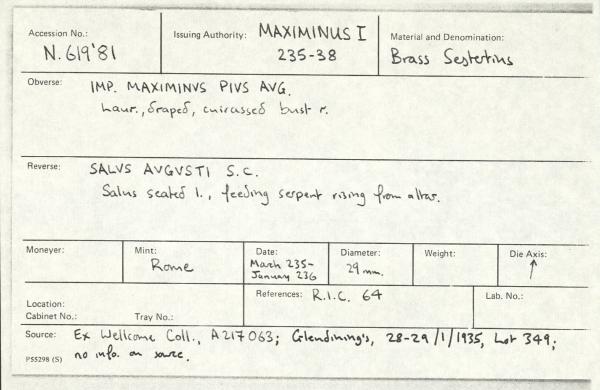 Accession No.: Issuing Authority: MAXIMINUS I Material and Denomination:
N.619'81 235-38 Brass Sestertius
Obverse: IMP. MAXIMINVS PIVS AVG.
Laur., draped, cuirassed bust r.
Reverse: SALVS AVGVSTI S.C.
Salus seated l., feeding serpent rising from altar.
Moneyer: Mint: Date: Diameter: Weight: Die Axis:
Rome March 235- 29 mm. ↑
January 236
References: R.I.C. 64 Lab. No.:
Location:
Cabinet No.: Tray No.:
Source: Ex Wellcome Coll., A217063; Glendining's, 28-29/1/1935, Lot 349;
PS5298 (S) no info. on source.